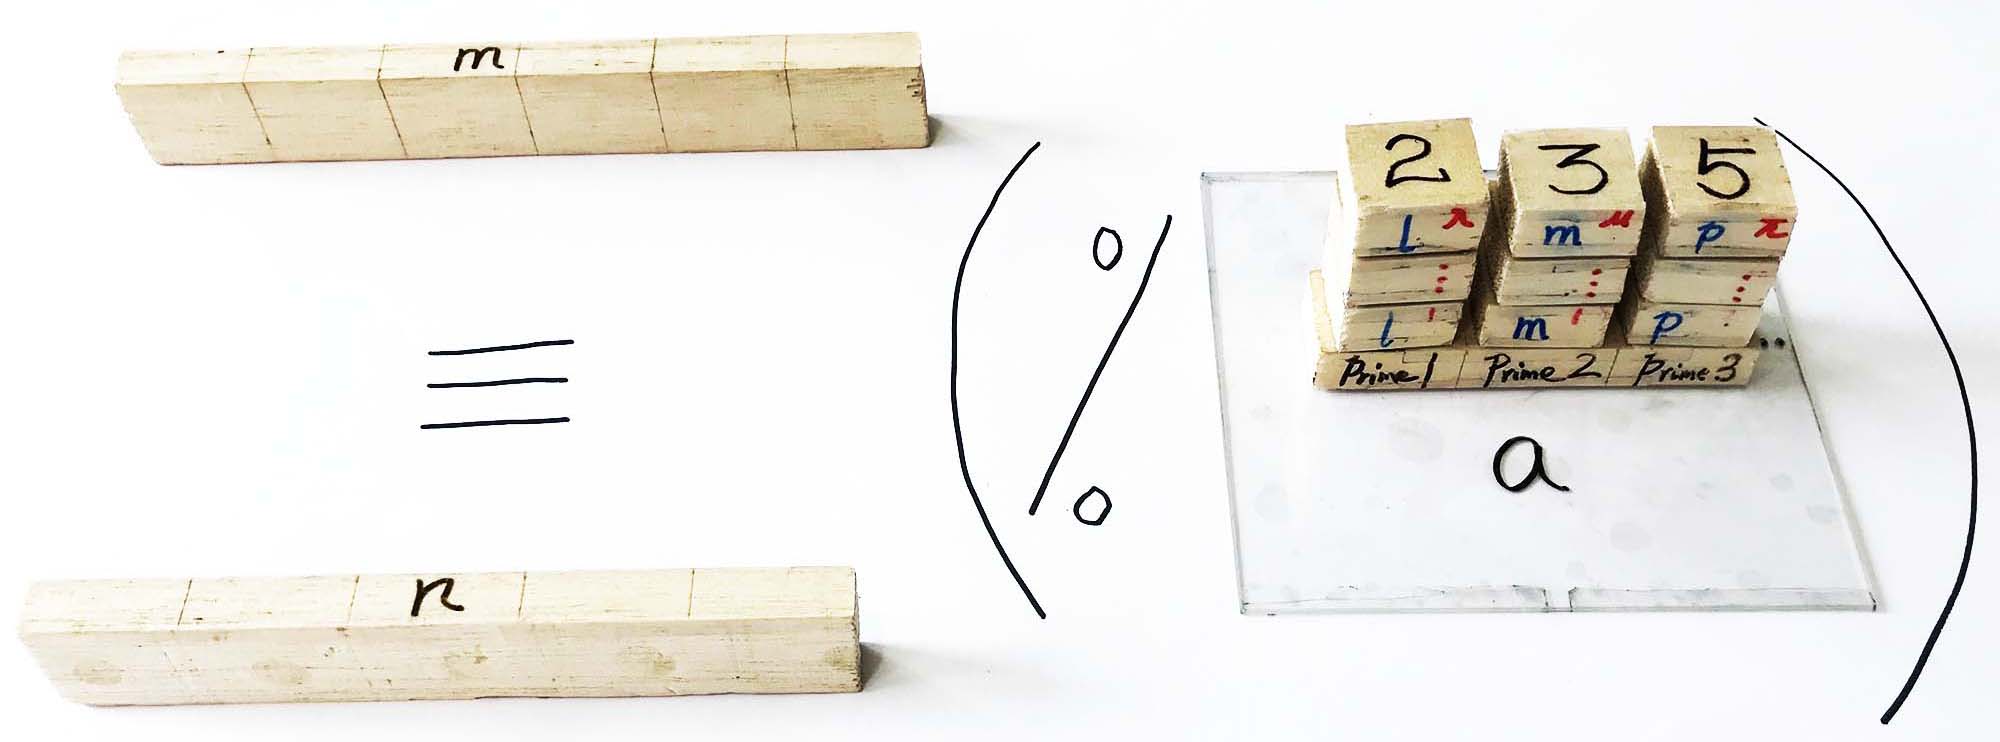 m
≡
n
( % a )
2 3 5
l λ m μ p π
⋮ ⋮ ⋮
l ' m ' p '
Prime 1 Prime 2 Prime 3 ..